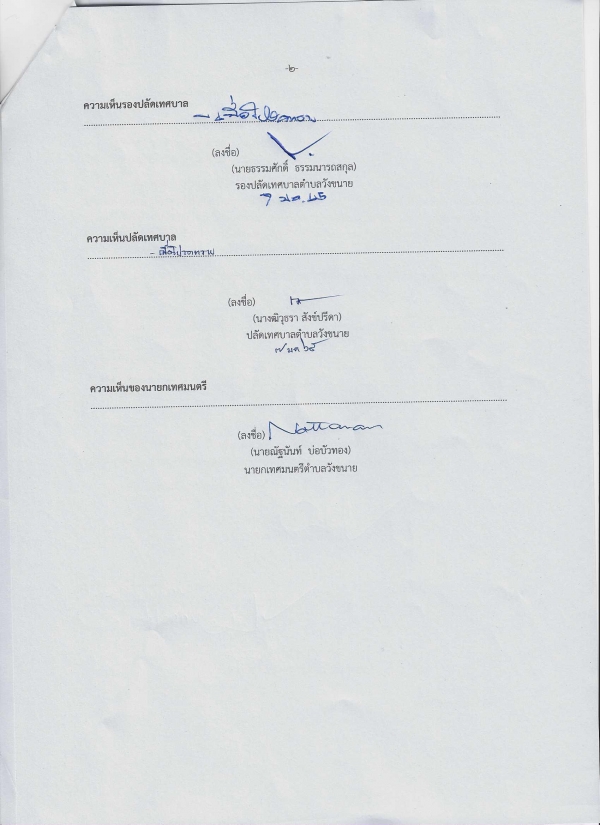 -๒-
ความเห็นรองปลัดเทศบาล
- เพื่อโปรดทราบ
(ลงชื่อ)
(นายธรรมศักดิ์ ธรรมนารถสกุล)
รองปลัดเทศบาลตำบลวังขนาย
7 มค. 65
ความเห็นปลัดเทศบาล
- เพื่อโปรดทราบ
(ลงชื่อ)
(นางฒิวุธรา สังข์ปรีดา)
ปลัดเทศบาลตำบลวังขนาย
๗ มค ๖๕
ความเห็นของนายกเทศมนตรี
(ลงชื่อ) Nattanan
(นายณัฐนันท์ บ่อบัวทอง)
นายกเทศมนตรีตำบลวังขนาย